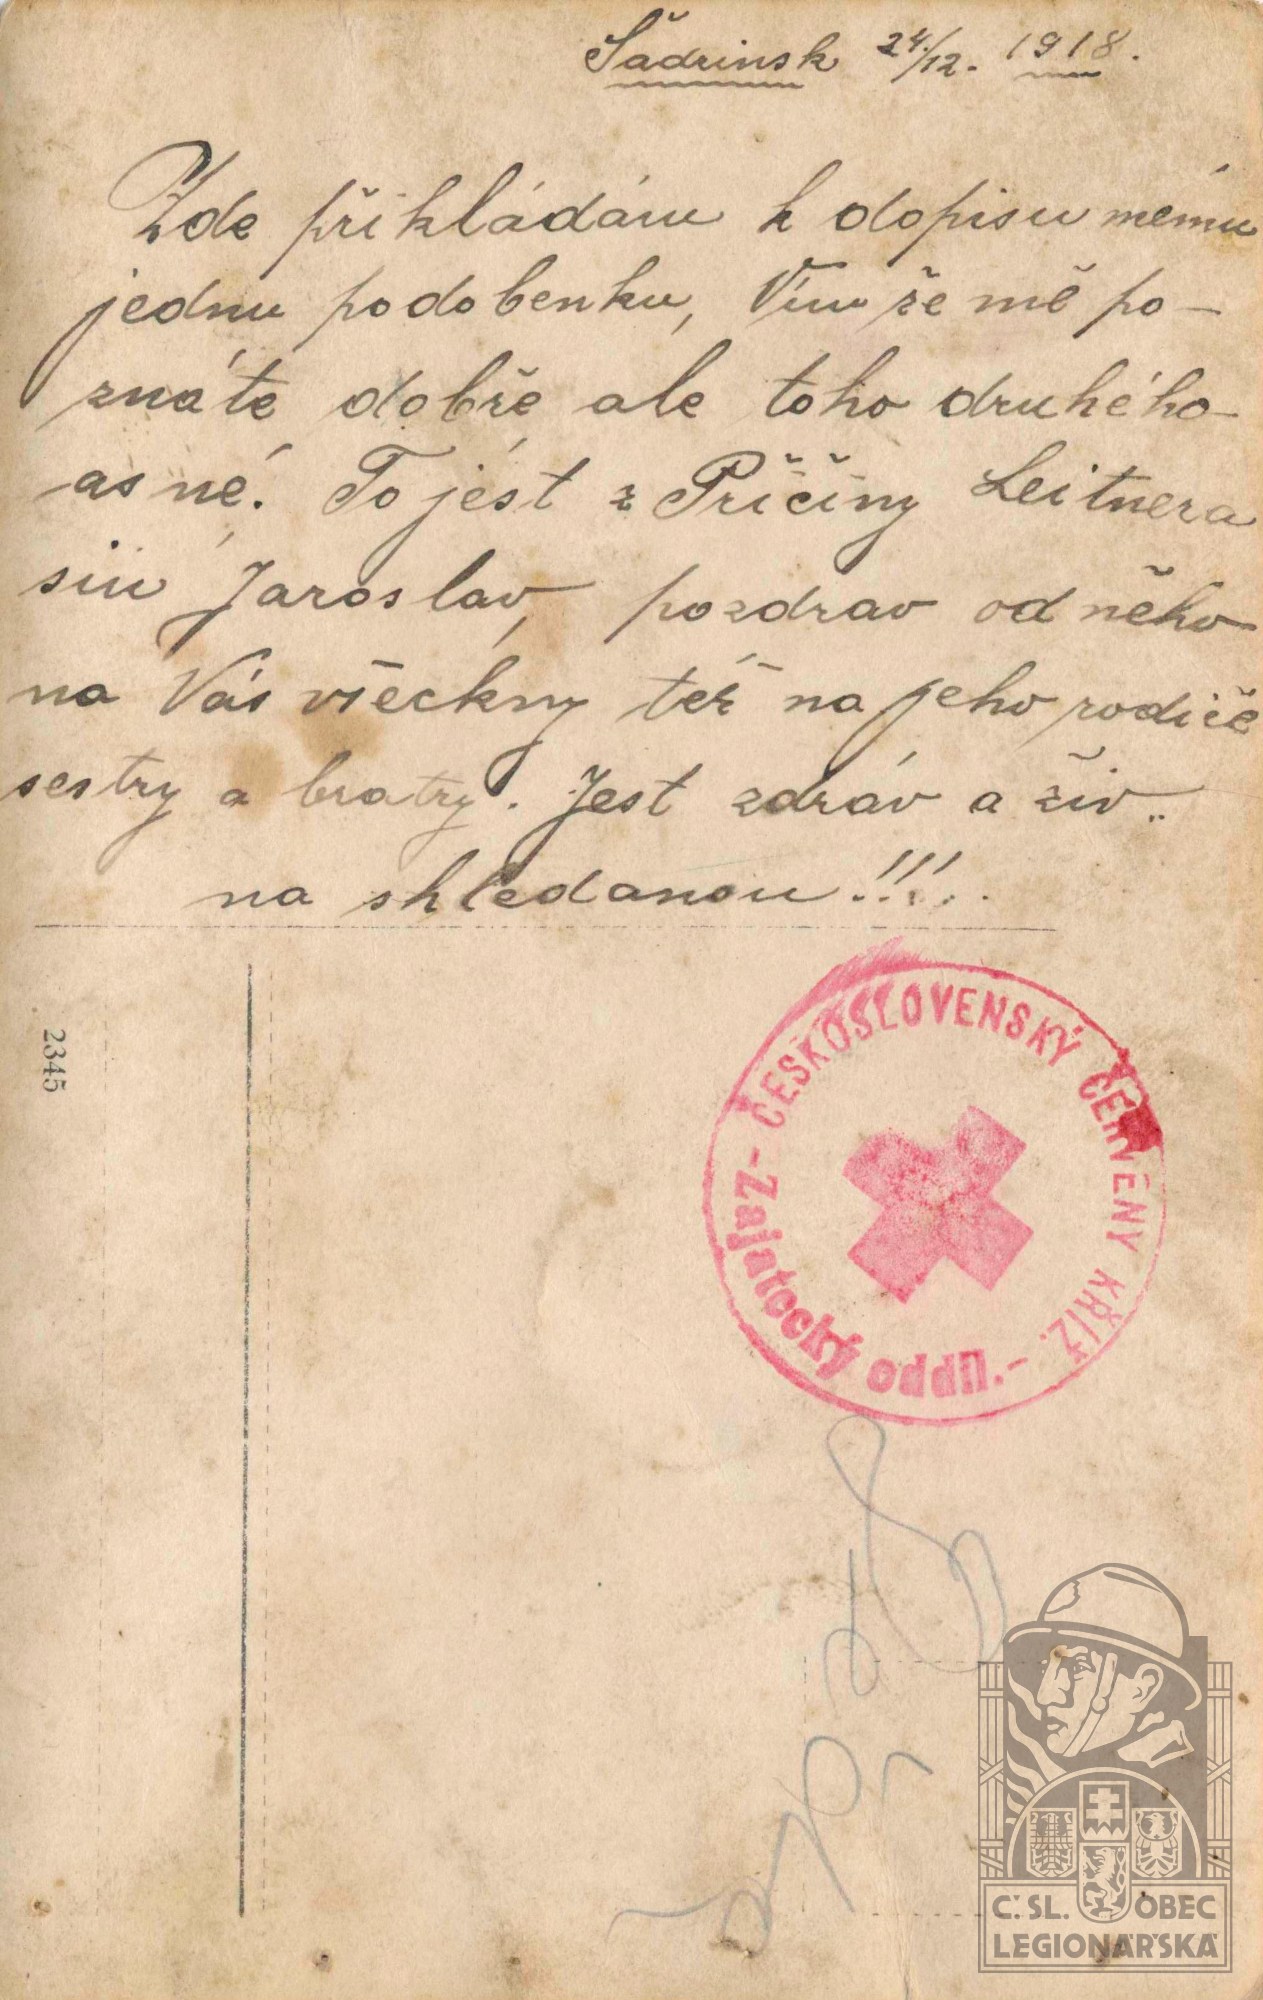 Šadrinsk 24./12. 1918.
Zde přikládám k dopisu mému
jednu podobenku, Vím že mě po-
znáte dobře ale toho druhého
as né. To jest z Příčiny Leitnera
sin Jaroslav, pozdrav od něho
na Vás všeckny též na jeho rodiče
sestry a bratry. Jest zdráv a živ..
na shledanou!!!..
2345
- ČESKOSLOVENSKÝ ČERVENÝ KŘÍŽ. -
Zajatecký oddíl.
Č. SL. OBEC
LEGIONÁŘSKÁ